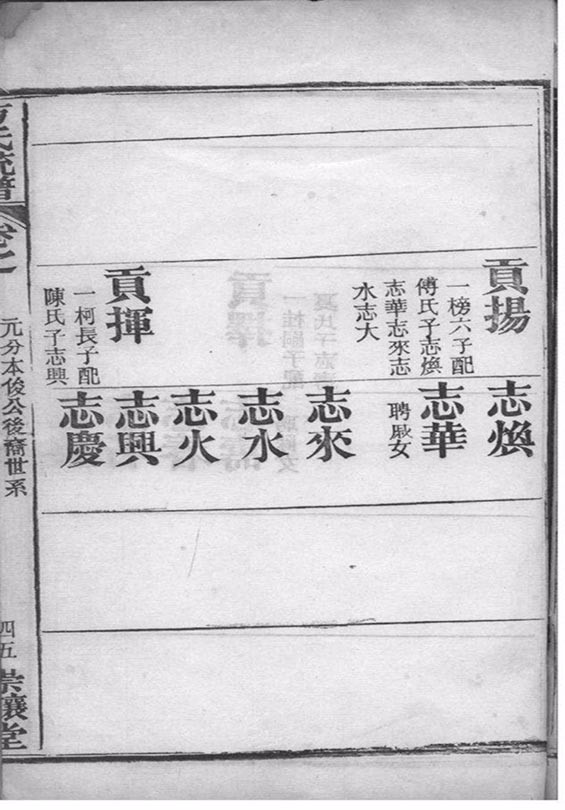 貢揚
一榜六子配
傅氏子志煥
志華志來志
水志火
貢揮
一柯長子配
陳氏子志興
志煥
志華
聘歐女
志來
志水
志火
志興
志慶
方氏統譜
卷之一
元分本俊公後裔世系
四五
崇讓堂